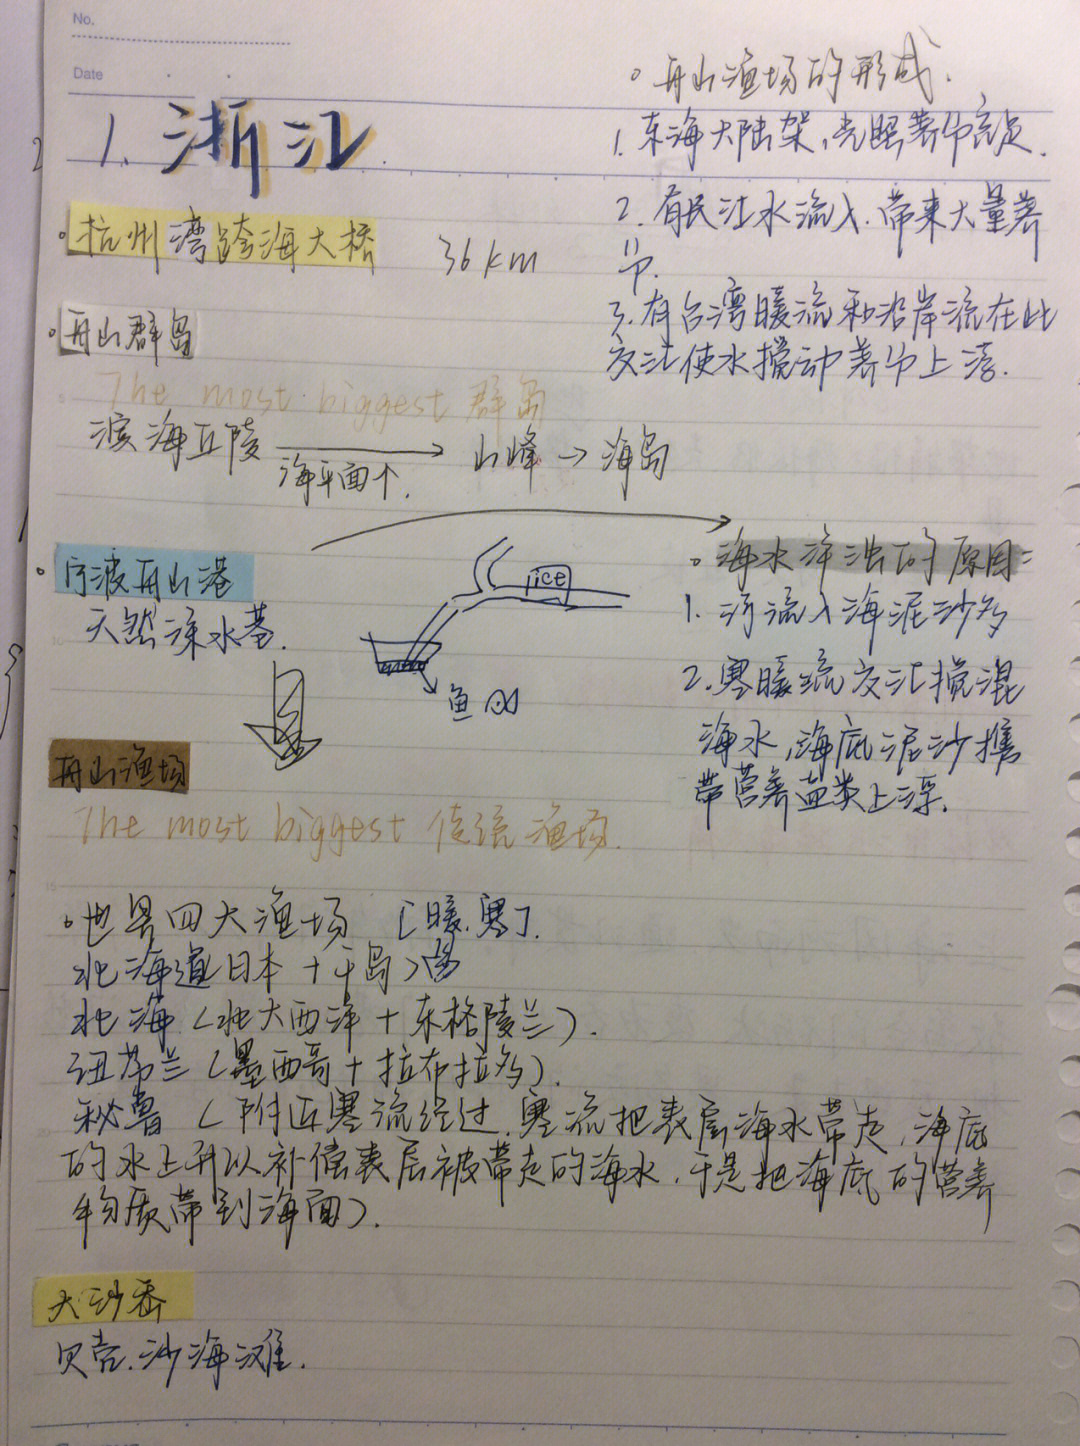 No.
Date
1. 浙江
。杭州湾跨海大桥 36km
。舟山群岛
The most biggest 群岛
滨海丘陵 海平面↑ → 山峰 → 海岛
。宁波舟山港
天然深水港.
ice
鱼
舟山渔场
The most biggest 传统渔场.
。世界四大渔场 [暖.寒].
北海道(日本+千岛)
北海(北大西洋+东格陵兰).
纽芬兰(墨西哥+拉布拉多).
秘鲁(附近寒流经过,寒流把表层海水带走,海底
的水上升以补偿表层被带走的海水,于是把海底的营养
物质带到海面).
大沙岙
贝壳.沙海滩.
。舟山渔场的形成.
1.东海大陆架,光照养分充足.
2.有长江水流入.带来大量养
分.
3.有台湾暖流和沿岸流在此
交汇使水搅动养分上浮.
。海水浑浊的原因:
1.河流入海泥沙多
2.寒暖流交汇搅混
海水,海底泥沙携
带营养盐类上浮.